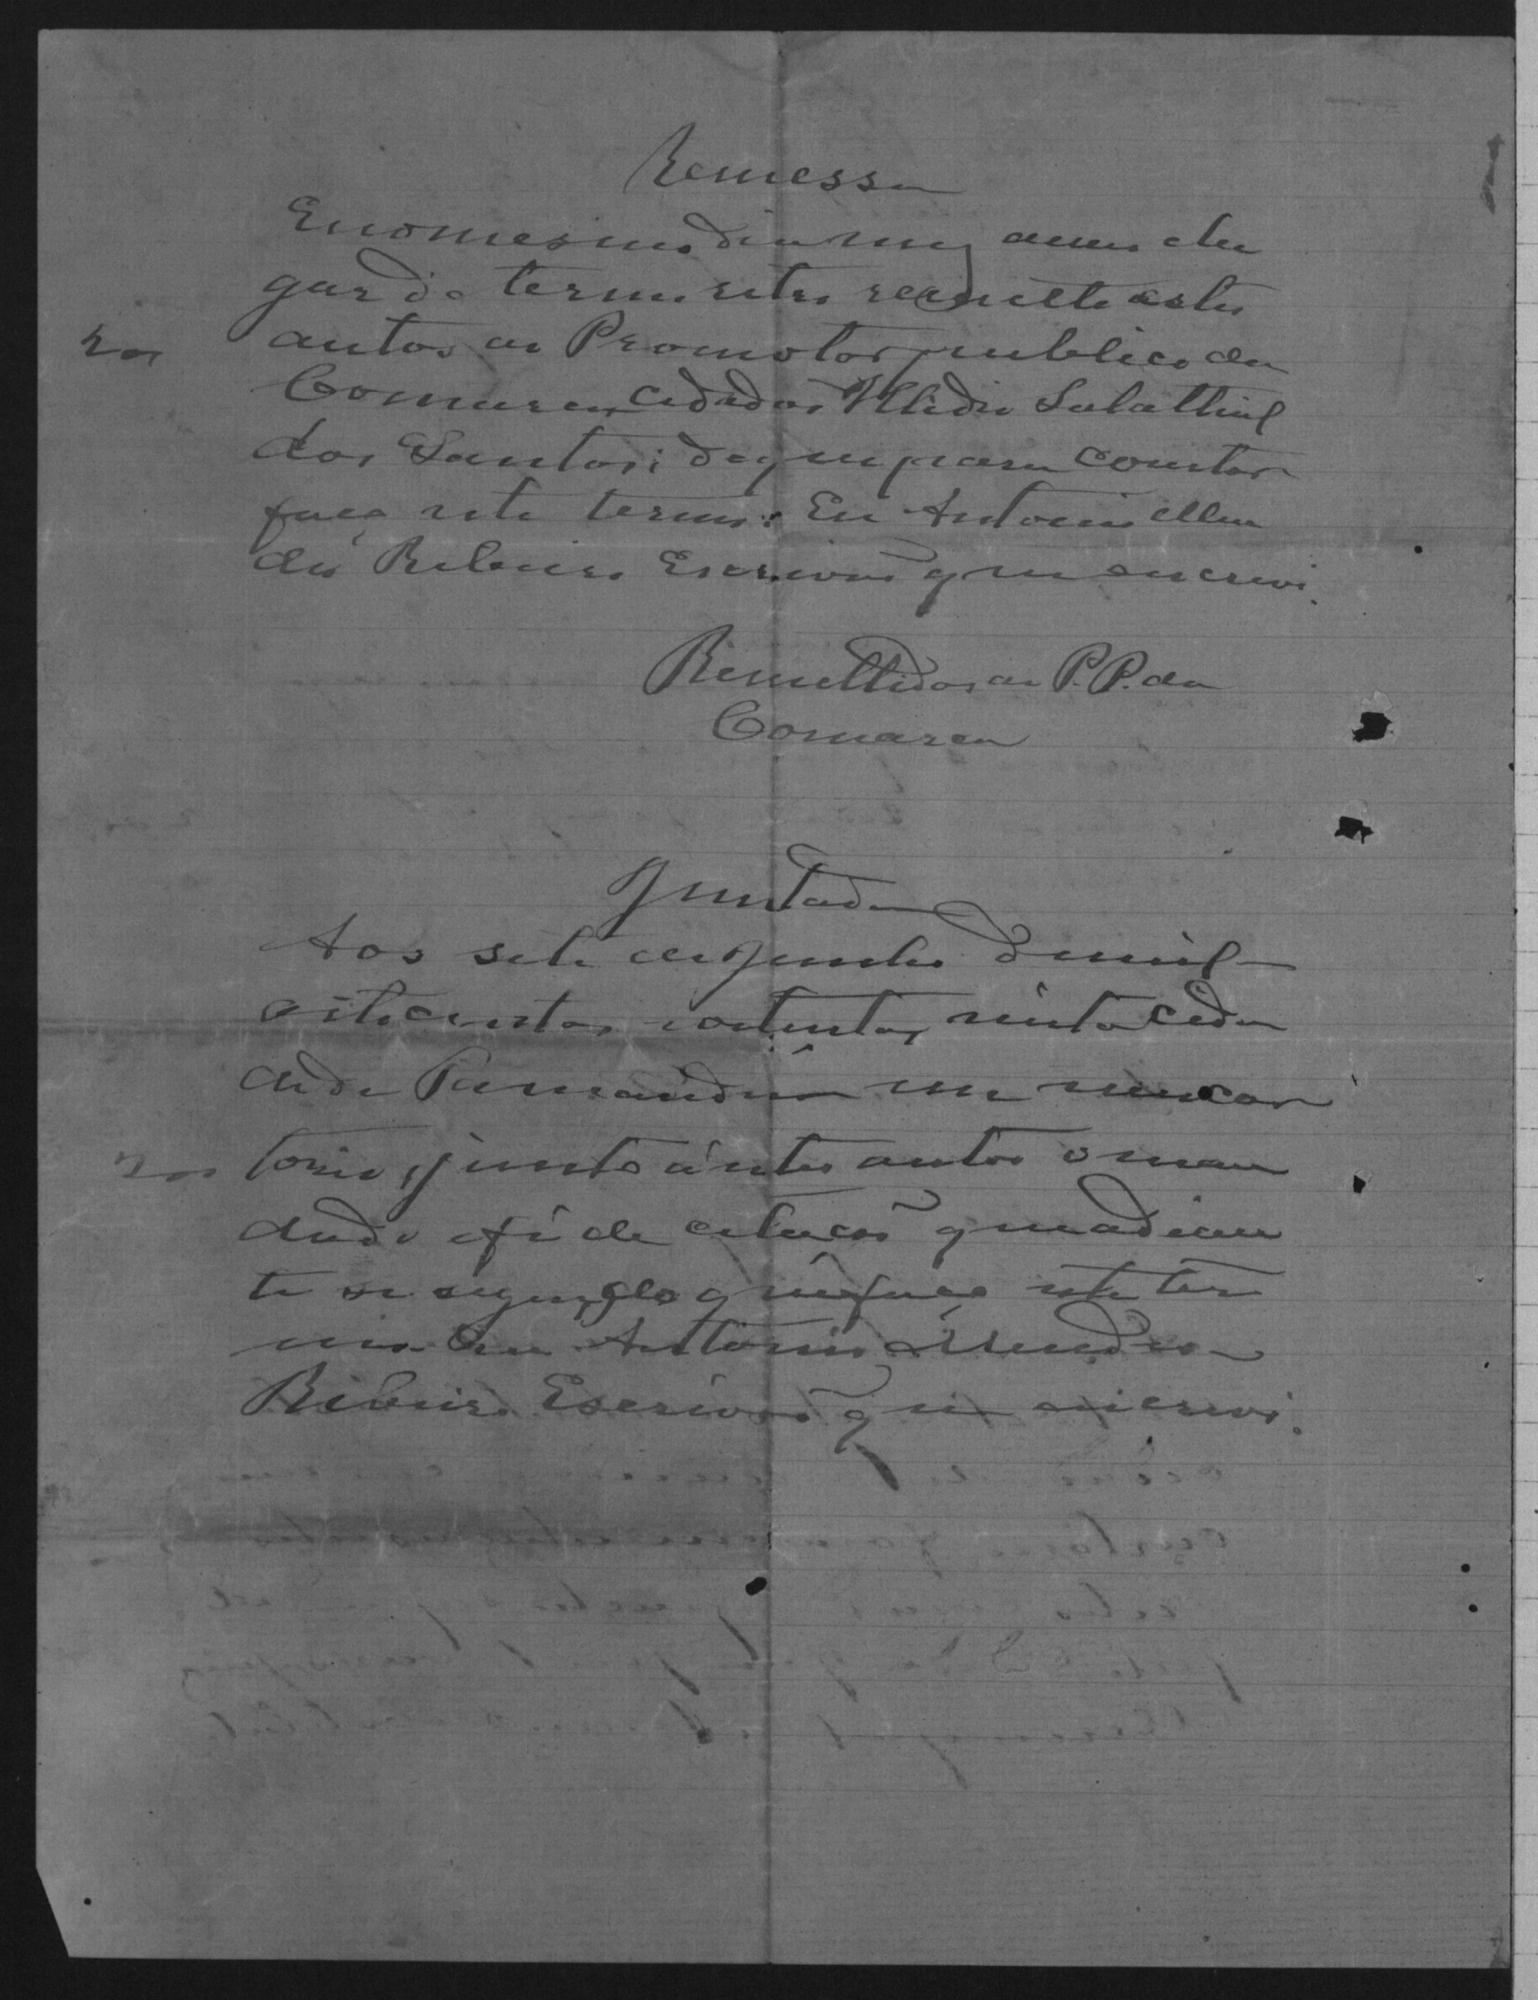 Remessa
E no mesmo dia mez anno e lu
gar do termo retro remetto estes
autos ao Promotor publico da
Comarca cidadão Illidio Salathiel
dos Santos; do que para constar
faço este termo: Eu Antonio Men
des Ribeiro Escrivão que o escrevi.
Remettidos ao P. P. da
Comarca
Juntada
Aos sete de Junho de mil
oitocentos noventa, nesta cida
de de em meu car
torio, junto á estes autos o man
dado e fé de citação que adian
te se segue, do que faço este ter
mo. Eu Antonio Mendes
Ribeiro Escrivão que o escrevi.